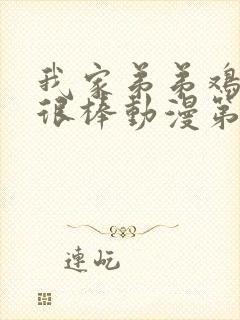 我家弟弟鸡
很棒動漫第
連屹